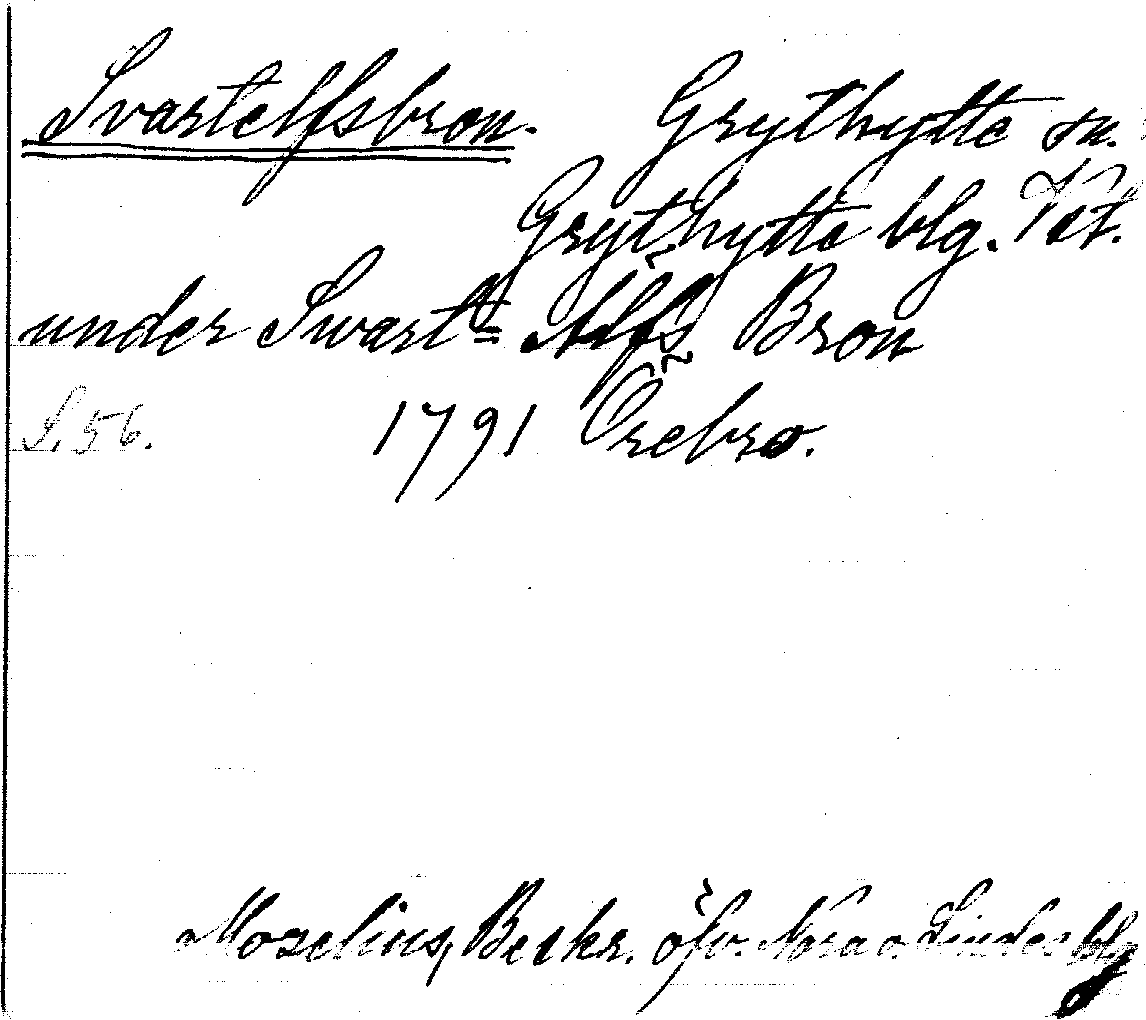 Svartelfsbron. Grythytte sn.
Grythytte blg. Vät.
under Swart= Älfs Bron
S. 56. 1791 Örebro.
Mozelius, Beskr. öfw. Nora o. Lindes blg